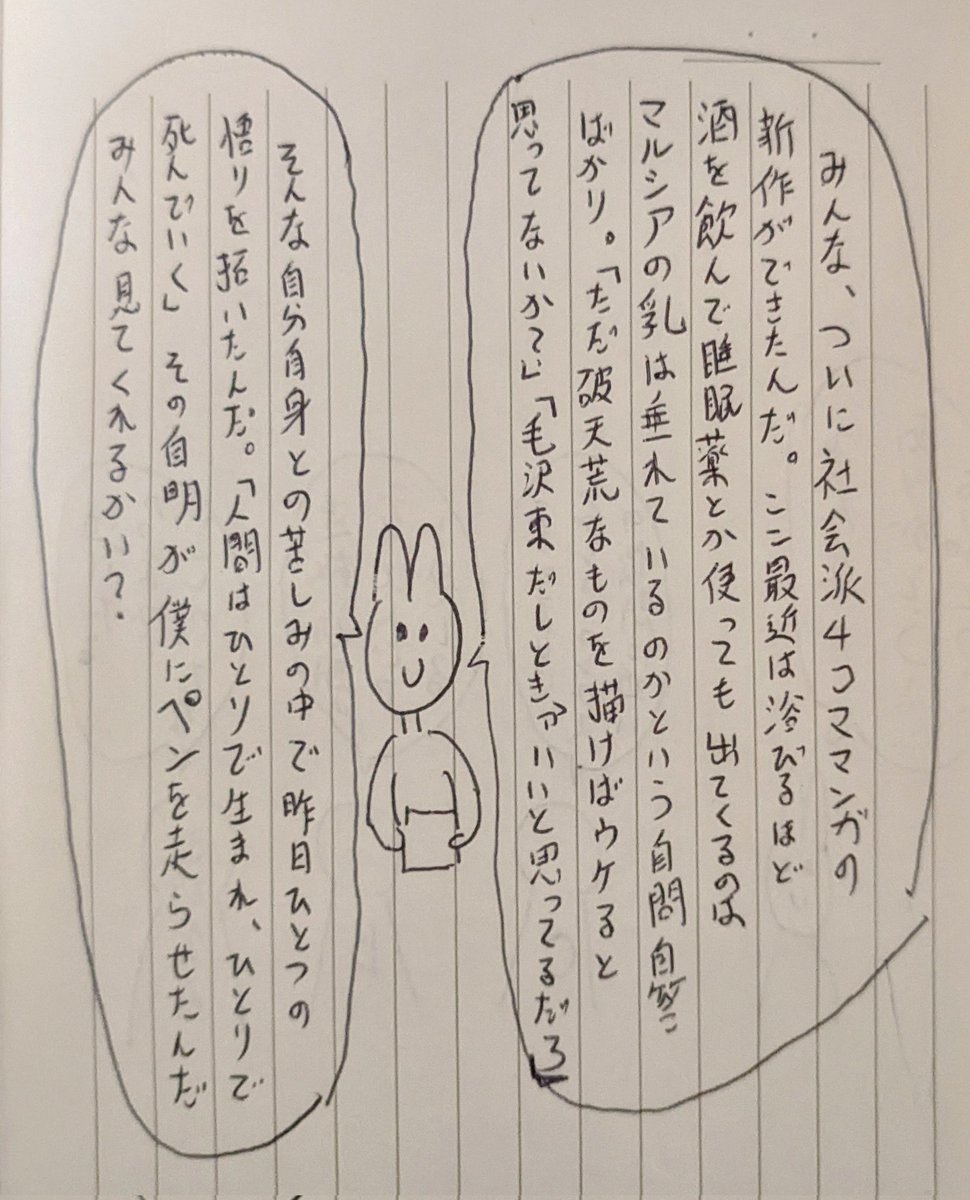 みんな、ついに社会派4コママンガの
新作ができたんだ。ここ最近は浴びるほど
酒を飲んで睡眠薬とか使っても出てくるのは
マルシアの乳は垂れているのかという自問自答
ばかり。「ただ破天荒なものを描けばウケると
思ってないかて」「毛沢東だしときァいいと思ってるだろ」
そんな自分自身との苦しみの中で昨日ひとつの
悟りを拓いたんだ。「人間はひとりで生まれ、ひとりで
死んでいく」その自明が僕にペンを走らせたんだ
みんな見てくれるかい?